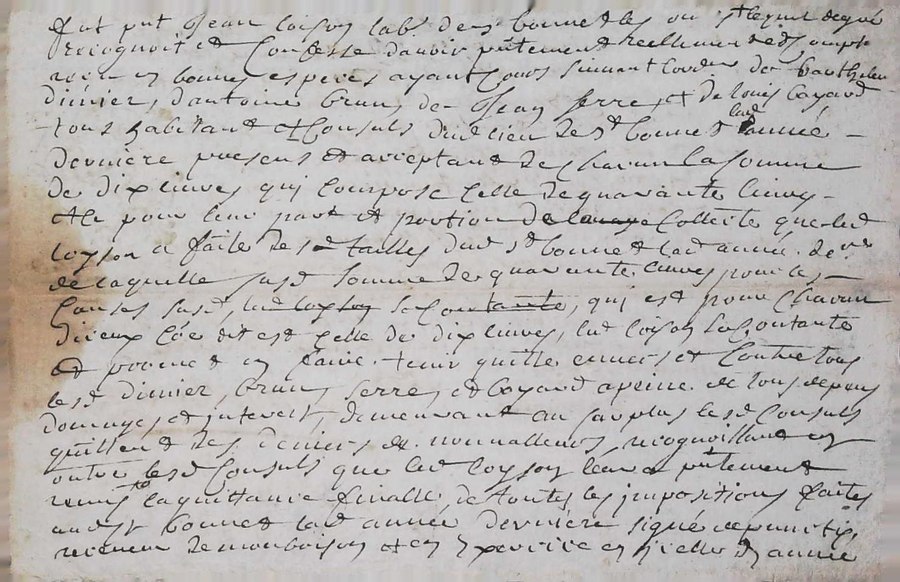 fut pnt Jean loison lab^r de s^t bonnet les ou st lequel de gré
recognoit et confesse d'avoir pntement reellement et
receu en bonnes especes ayant cours suivant lordre de barthelemy
dimier, d'antoine brun, de Jean serre, et de louis boyard
tous habitant et Consuls dud lieu de st bonnet lad année
dernière presens et acceptant de chacun la somme
de dix livres qui compose celle de quarante livres
et ce pour leur part et portion de collecte que led
loyson a faite des tailles dud st bonnet lad année der^re
de laquelle susd somme de quarante livres pour les
causes susd, led loyson se contante, qui est pour chacun
dieux co[mm]e dit est celle de dix livres, led loison sen contante
et promet en faire tenir quitte envers et contre tous
lesd dimier, brun, serre, et boyard a peine de tous depens
domages et interest, demeurant au surplus lesd Consuls
quittent des deniers de nonvalleurs, recognoissant en
outre lesd Consuls que led loyson leur a pntement
remis la quittance finalle de toutes les impositions faites
aud st bonnet lad année dernière signé
receveur de monbrison et en exercice en icelle d année